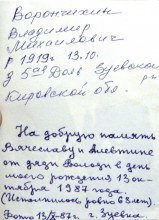 Ворончихин
Владимир
Михайлович
р 1919г 13.10.
д 5ая Зуевского
р-н
Кировской обл.
На добрую память
Вячеславу и Алевтине
от дяди Володи в день
моего рождения 13 ок-
тября 1987 года.
(Исполнилось ровно 68 лет).
Фото 13/X-87г. г. Зуевка.